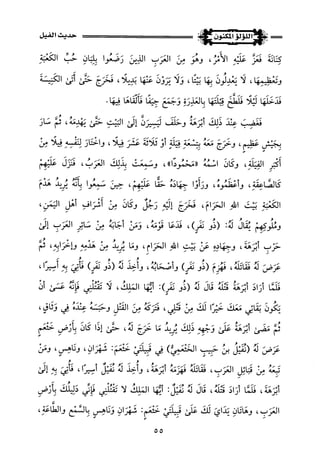 اللؤلؤ المكنون
حديث الفيل
كِنَانَةَ فَعَزَّ عَلَيْهِ الأَمْرُ، وهُوَ مِنَ العَرَبِ الذِينَ رَضَعُوا بِلِبَانِ حُبِّ الكَعْبَةِ
وتَعْظِيمِهَا، لَا يَعْدِلُونَ بِهَا بَيْتًا، وَلَا يَرَوْنَ عَنْهَا بَدِيلًا، فَخَرَجَ حَتَّى أَتَى الكَنِيسَةَ
فَدَخَلَهَا لَيْلًا فَلَطَّخَ قِبْلَتَهَا بِالعَذِرَةِ وَجَمَعَ جِيَفًا فَأَلْقَاهَا فِيهَا.
فَغَضِبَ عِنْدَ ذَلِكَ أَبْرَهَةُ وحَلَفَ لَيَسِيرَنَّ إِلَى البَيْتِ حَتَّى يَهْدِمَهُ، ثُمَّ سَارَ
بِجَيْشٍ عَظِيمٍ، وخَرَجَ مَعَهُ بِتِسْعَةِ فِيَلَةٍ أَوْ ثَلَاثَةَ عَشَرَ فِيلًا، واخْتَارَ لِنَفْسِهِ فِيلًا مِنْ
أَكْبَرِ الفِيَلَةِ، وكَانَ اسْمُهُ «مَحْمُودًا»، وسَمِعَتْ بِذَلِكَ العَرَبُ، فَنَزَلَ عَلَيْهِمْ
كَالصَّاعِقَةِ، وأَعْظَمُوهُ، ورَأَوْا جِهَادَهُ حَقًّا عَلَيْهِمْ، حِينَ سَمِعُوا بِأَنَّهُ يُرِيدُ هَدْمَ
الكَعْبَةِ بَيْتِ اللهِ الحَرَامِ، فَخَرَجَ إِلَيْهِ رَجُلٌ وكَانَ مِنْ أَشْرَافِ أَهْلِ اليَمَنِ،
ومُلُوكِهِمْ يُقَالُ لَهُ: (ذُو نَفْرٍ)، فَدَعَا قَوْمَهُ، ومَنْ أَجَابَهُ مِنْ سَائِرِ العَرَبِ إِلَى
حَرْبِ أَبْرَهَةَ، وجِهَادِهِ عَنْ بَيْتِ اللهِ الحَرَامِ، ومَا يُرِيدُ مِنْ هَدْمِهِ وإِخْرَابِهِ، ثُمَّ
عَرَضَ لَهُ فَقَاتَلَهُ، فَهُزِمَ (ذُو نَفْرٍ) وأَصْحَابُهُ، وأُخِذَ لَهُ (ذُو نَفْرٍ) فَأُتِيَ بِهِ أَسِيرًا،
فَلَمَّا أَرَادَ أَبْرَهَةُ قَتْلَهُ قَالَ لَهُ (ذُو نَفْرٍ): أَيُّهَا المَلِكُ، لَا تَقْتُلْنِي فَإِنَّهُ عَسَى أَنْ
يَكُونَ بَقَائِي مَعَكَ خَيْرًا لَكَ مِنْ قَتْلِي، فَتَرَكَهُ مِنَ القَتْلِ وحَبَسَهُ عِنْدَهُ فِي وَثَاقٍ،
ثُمَّ مَضَى أَبْرَهَةُ عَلَى وَجْهِهِ ذَلِكَ يُرِيدُ مَا خَرَجَ لَهُ، حَتَّى إِذَا كَانَ بِأَرْضِ خَثْعَمٍ
عَرَضَ لَهُ (نُفَيْلُ بنُ حَبِيبٍ الخَثْعَمِيُّ) فِي قَبِيلَتَيْ خَثْعَمَ: شَهْرَانِ، ونَاهِسٍ، ومَنْ
تَبِعَهُ مِنْ قَبَائِلِ العَرَبِ، فَقَاتَلَهُ فَهَزَمَهُ أَبْرَهَةُ، وأُخِذَ لَهُ نُفَيْلٌ أَسِيرًا، فَأُتِيَ بِهِ إِلَى
أَبْرَهَةَ، فَلَمَّا أَرَادَ قَتْلَهُ، قَالَ لَهُ نُفَيْلٌ: أَيُّهَا المَلِكُ لَا تَقْتُلْنِي فَإِنِّي دَلِيلُكَ بِأَرْضِ
العَرَبِ، وهَاتَانِ يَدَايَ لَكَ عَلَى قَبِيلَتَيْ خَثْعَمَ: شَهْرَانِ ونَاهِسٍ بِالسَّمْعِ والطَّاعَةِ،
٥٥